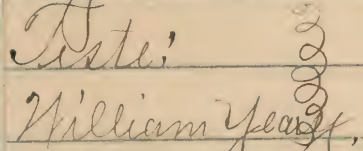 Teste:
William Yeary,